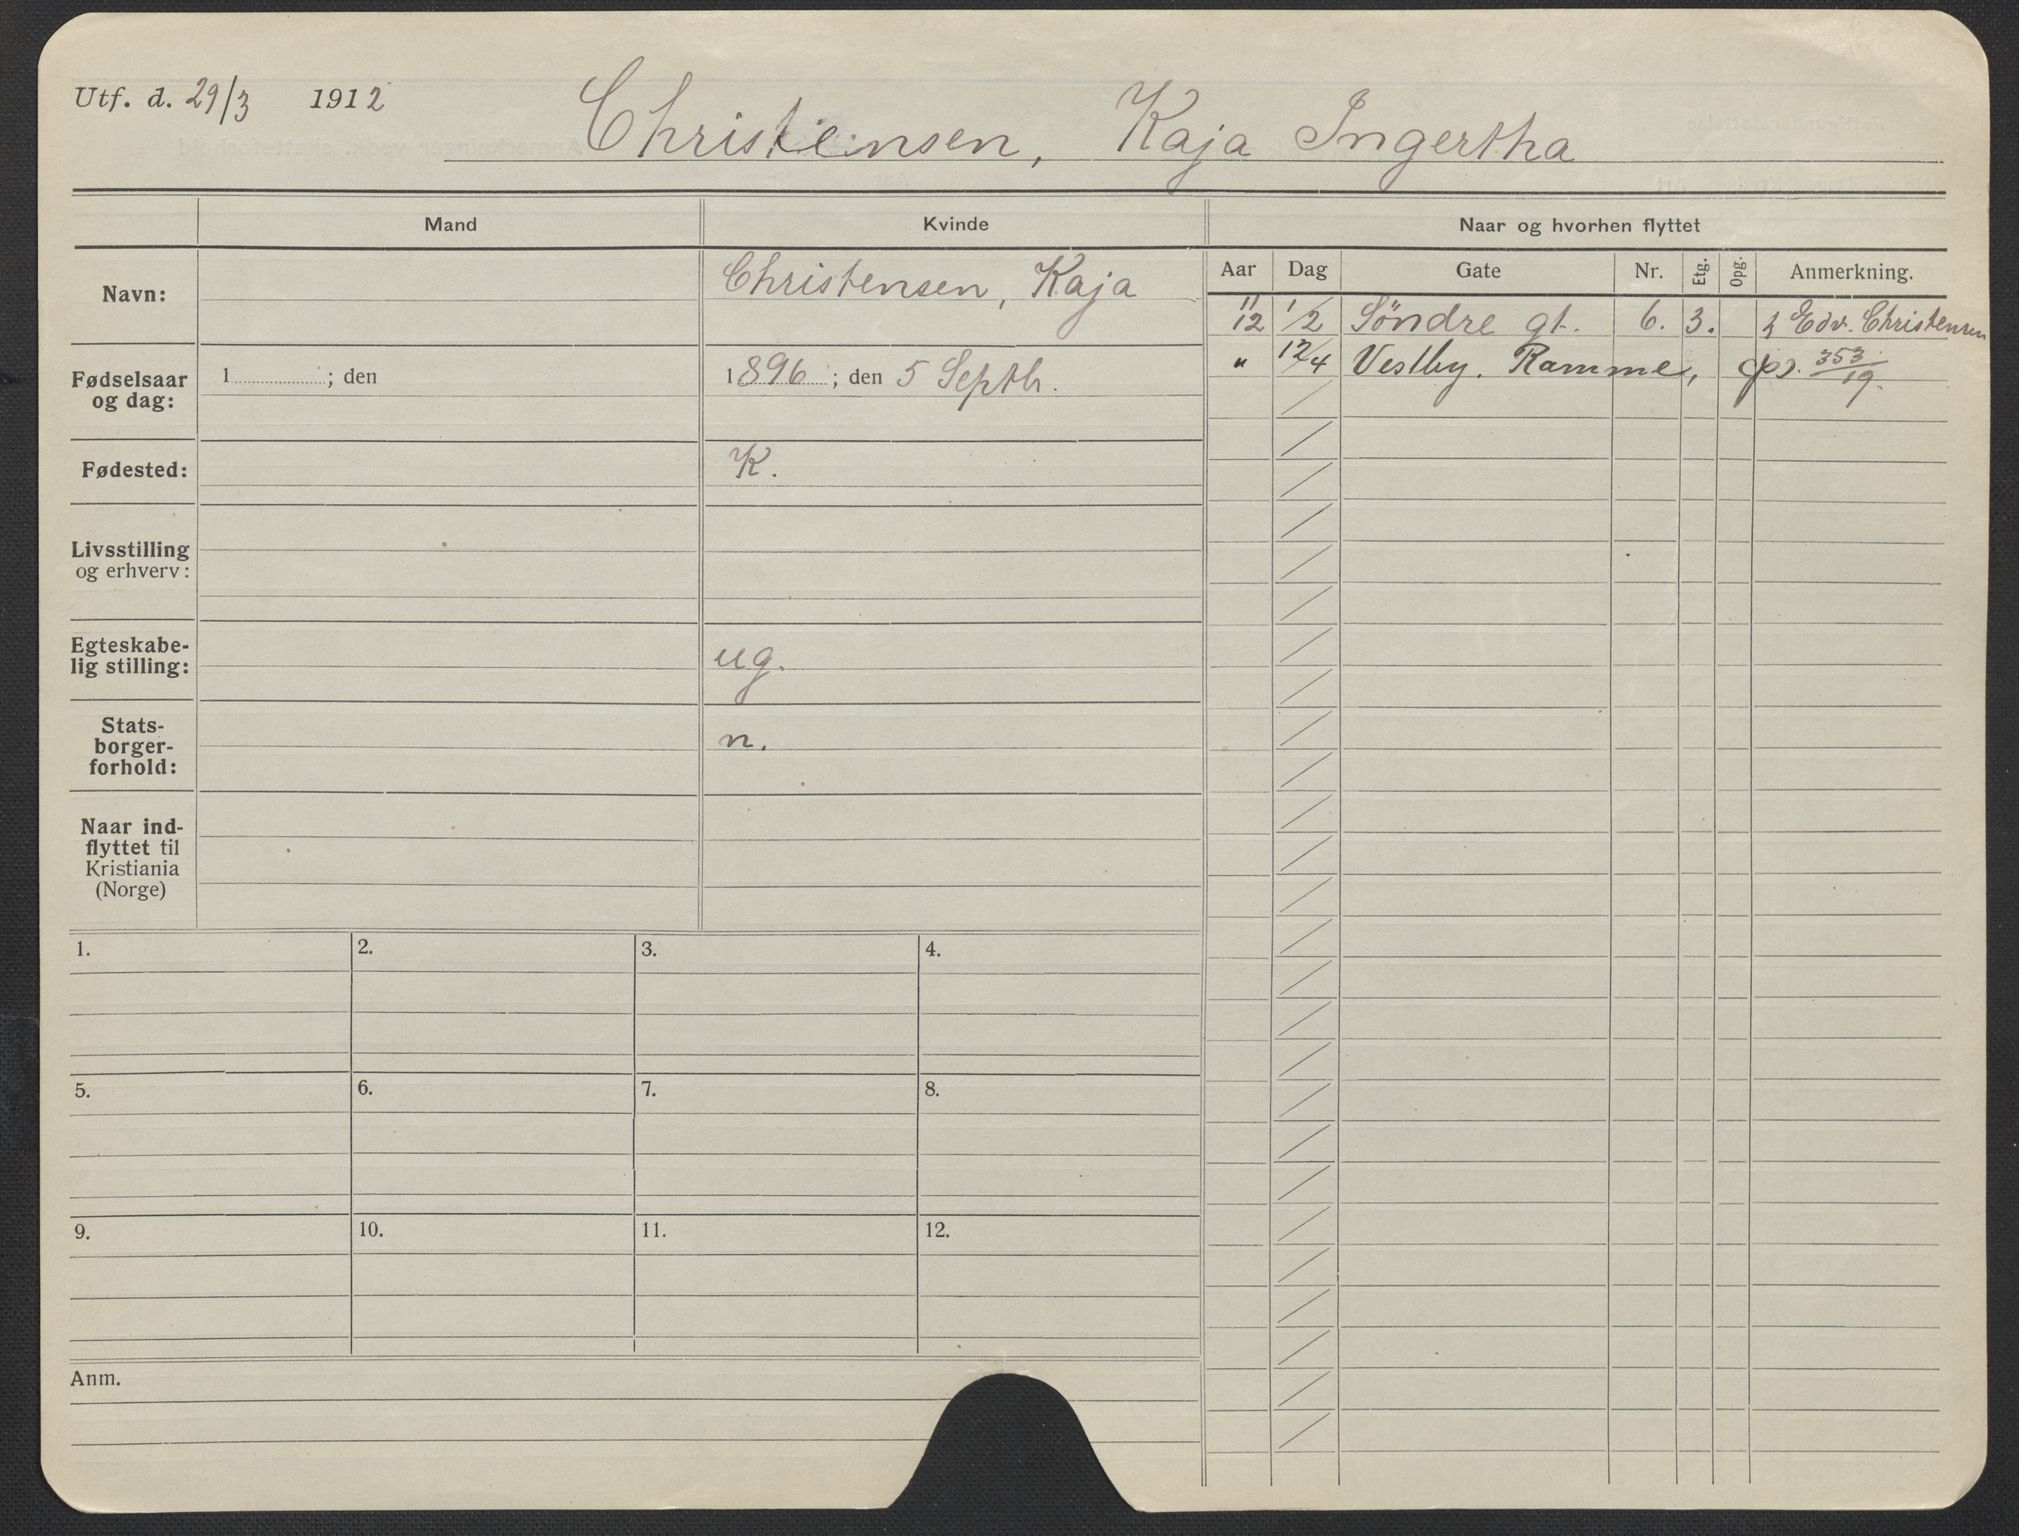 Utf. d. 29/3 1912
Christensen, Kaja Ingertha
Mand
Kvinde
Naar og hvorhen flyttet
Navn:
Christensen, Kaja
Aar Dag Gate Nr. Etg. Opg. Anmerkning.
11
12 1/2 Söndre gt. 6. 3. Edv. Christensen
" 12/4 Vestby. Ramme, 353/19.
Fødselsaar
og dag:
1 ; den
1896 ; den 5 Septbr.
Fødested:
K.
Livsstilling
og erhverv:
Egteskabe-
lig stilling:
ug.
Stats-
borger-
forhold:
n.
Naar ind-
flyttet til
Kristiania
(Norge)
1. 2. 3. 4.
5. 6. 7. 8.
9. 10. 11. 12.
Anm.